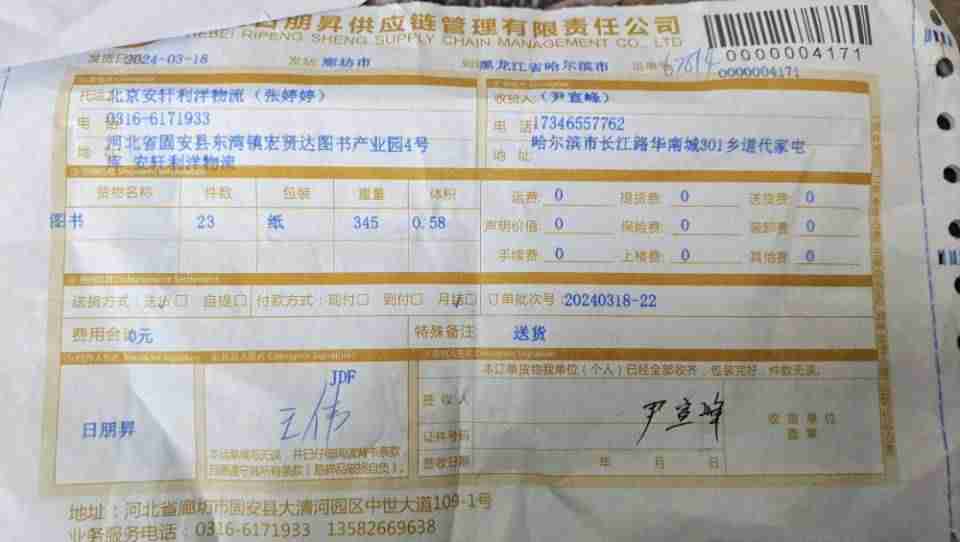 日朋昇供应链管理有限责任公司
HEBEI RIPENG SHENG SUPPLY CHAIN MANAGEMENT CO., LTD
0000004171
发货日2024-03-18 发站 廊坊市 到 黑龙江省哈尔滨市 运单号
0000004171
托运 北京安轩利洋物流（张婷婷） 收货人（尹宣峰）
电 话 0316-6171933 电 话 17346557762
地 河北省固安县东湾镇宏贤达图书产业园4号 地 址 哈尔滨市长江路华南城301乡道代家屯
库 安轩利洋物流
货物名称 件数 包装 重量 体积 运费: 0 提货费: 0 送货费: 0
图书 23 纸 345 0.58 声明价值: 0 保险费: 0 装卸费: 0
手续费: 0 上楼费: 0 其他费: 0
送货方式：送货□ 自提□ 付款方式：现付□ 到付□ 月结□ 订单批次号 20240318-22
费用合计0元 特殊备注 送货
本订单货物我单位（个人）已经全部收齐，包装完好，件数无误。
JDF
日朋昇 王伟 签收人 尹宣峰 收货单位
盖章
证件号码
签收日期 年 月 日
地址：河北省廊坊市固安县大清河园区中世大道109-1号
业务服务电话：0316-6171933 13582669638